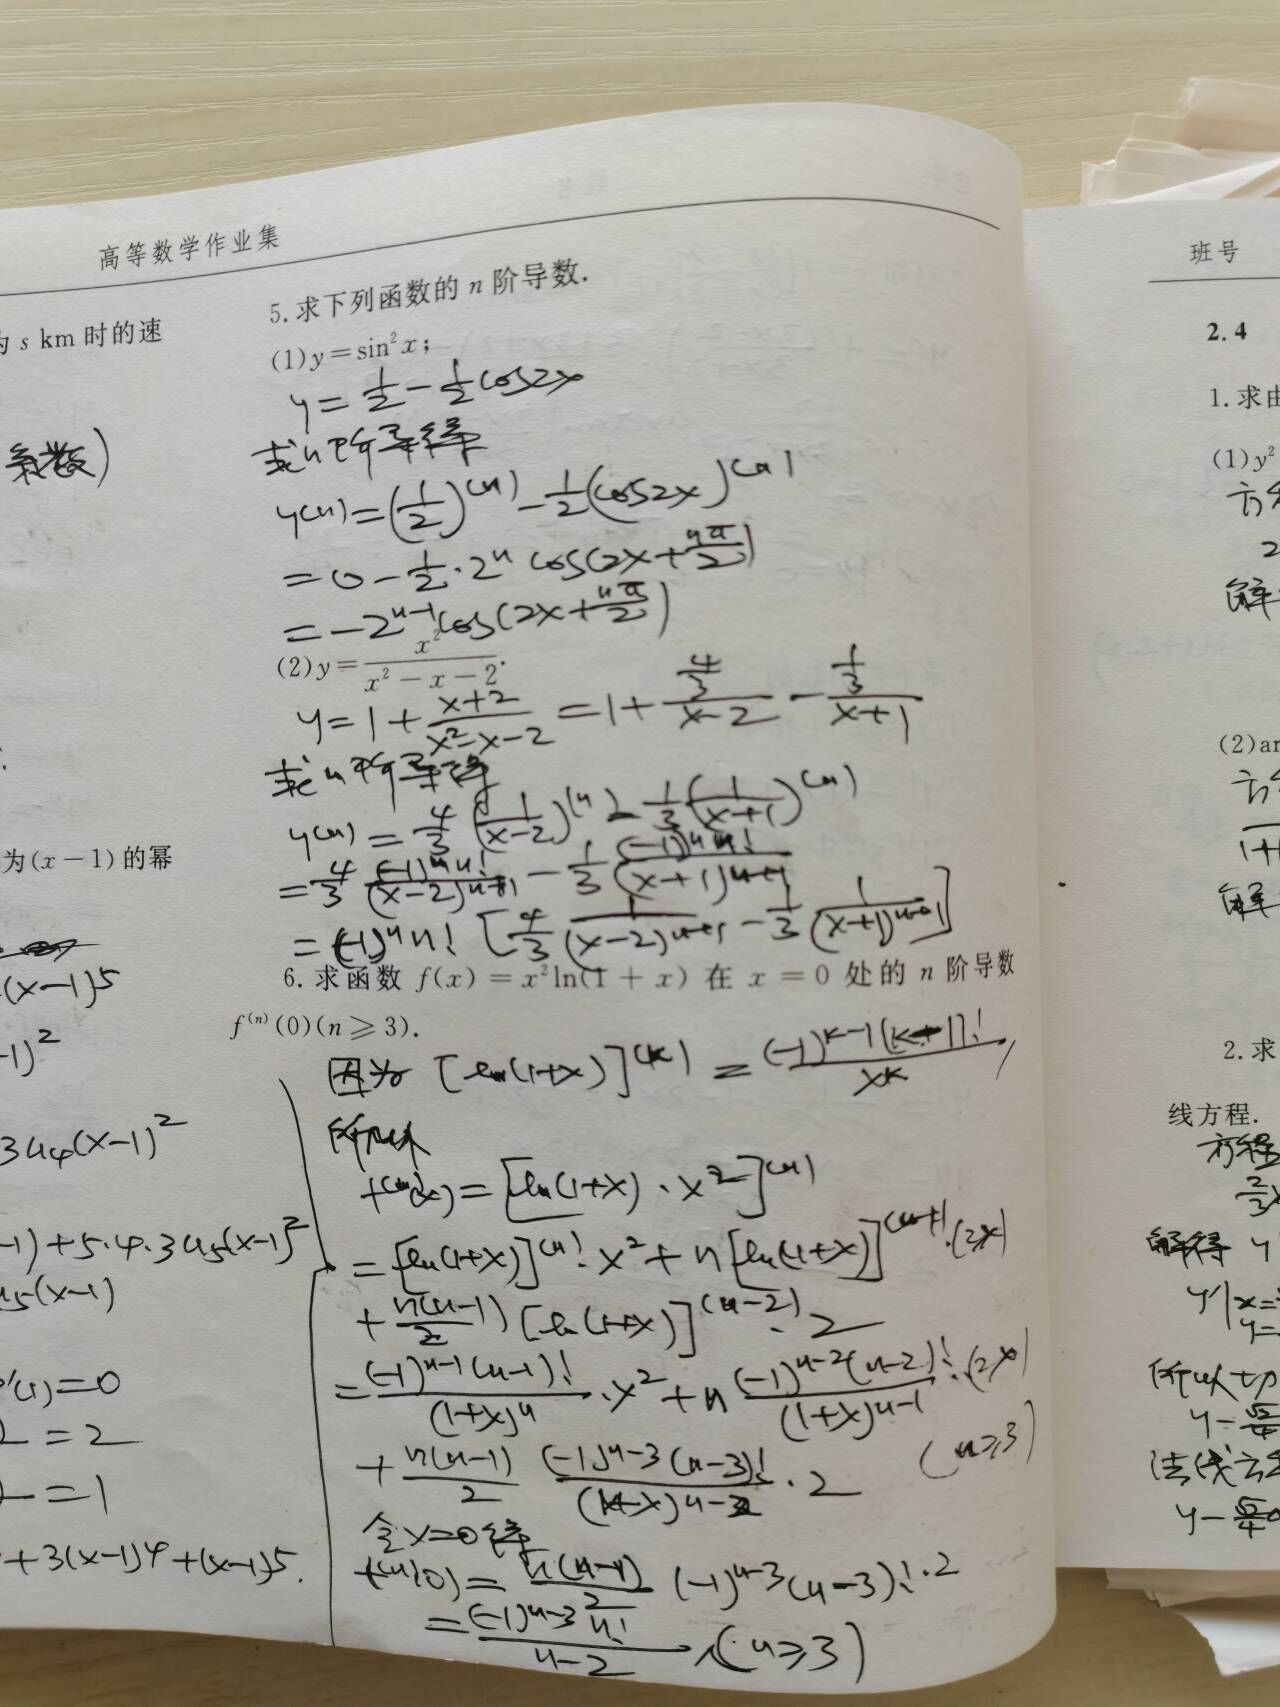 高等数学作业集
为 s km 时的速
系数)
为(x-1)的幂
(x-1)^5
-1)^2
3u4(x-1)^2
-1)+5·4·3u5(x-1)^2
u5(x-1)
(1)=0
=2
=1
+3(x-1)^4+(x-1)^5.
5.求下列函数的 n 阶导数.
(1)y=sin²x;
y=1/2-1/2cos2x
求n阶导得
y(n)=(1/2)^(n)-1/2(cos2x)^(n)
=0-1/2·2^n cos(2x+nπ/2)
=-2^(n-1)cos(2x+nπ/2)
(2)y=x²/(x²-x-2).
y=1+(x+2)/(x²-x-2)=1+(4/3)/(x-2)-(1/3)/(x+1)
求n阶导得
y(n)=4/3(1/(x-2))^(n)-1/3(1/(x+1))^(n)
=4/3 (-1)^n n!/(x-2)^(n+1)-1/3 (-1)^n n!/(x+1)^(n+1)
=(-1)^n n![4/3 1/(x-2)^(n+1)-1/3 1/(x+1)^(n+1)]
6.求函数 f(x)=x²ln(1+x) 在 x=0 处的 n 阶导数
f^(n)(0)(n≥3).
因为 [ln(1+x)]^(k)=(-1)^(k-1)(k-1)!/x^k,
所以
f^(n)(x)=[ln(1+x)·x²]^(n)
=[ln(1+x)]^(n)·x²+n[ln(1+x)]^(n-1)·(2x)
+n(n-1)/2[ln(1+x)]^(n-2)·2
=(-1)^(n-1)(n-1)!/(1+x)^n·x²+n (-1)^(n-2)(n-2)!/(1+x)^(n-1)·(2x)
+n(n-1)/2 (-1)^(n-3)(n-3)!/(1+x)^(n-2)·2 (n≥3)
令x=0得
f^(n)(0)=n(n-1)/2 (-1)^(n-3)(n-3)!·2
=(-1)^(n-3)n!/(n-2),(n≥3)
班号
2.4
1.求由
(1)y²
方程
2
解
(2)ar
方程
1+
解
2.求
线方程.
方程
解得 y
y'|x=
y=
所以切
y-
法线方程
y-